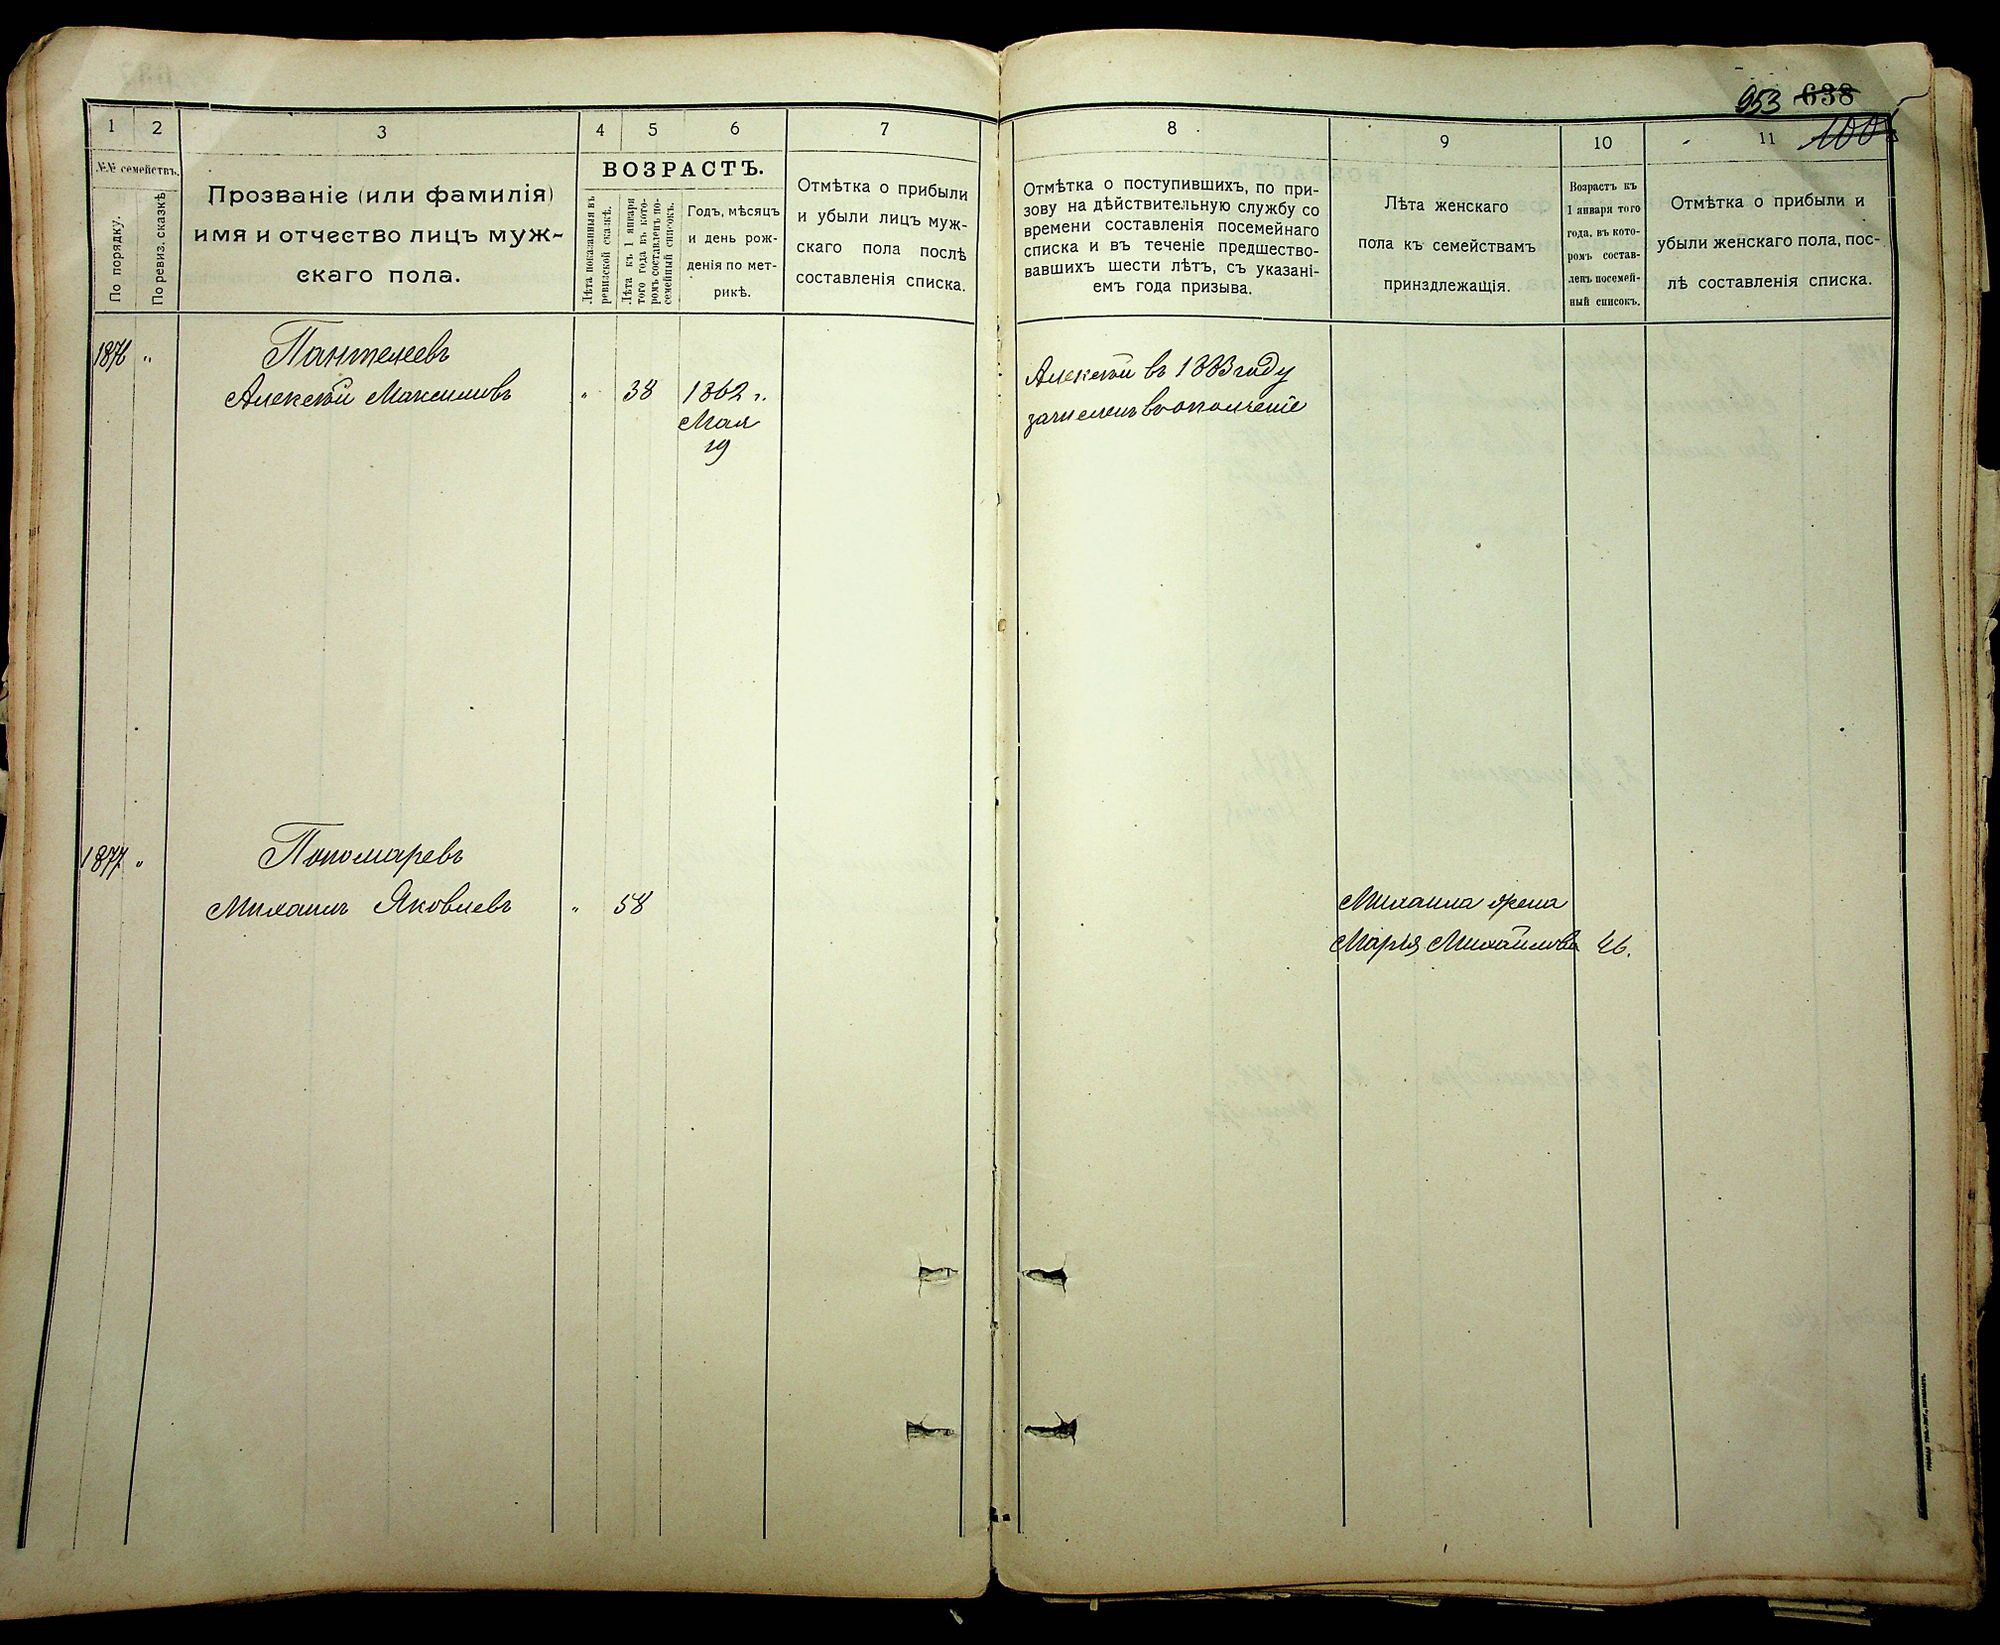 953 638
1 2 3 4 5 6 7 8 9 10 11
№№ семействъ.
По порядку.
По ревиз. сказкѣ
Прозваніе (или фамилія)
имя и отчество лицъ муж-
скаго пола.
ВОЗРАСТЪ.
Лѣта показанныя въ
ревизской сказкѣ.
Лѣта къ 1 января
того года въ кото-
ромъ составленъ по-
семейный списокъ.
Годъ, мѣсяцъ
и день рож-
денія по мет-
рикѣ.
Отмѣтка о прибыли
и убыли лицъ муж-
скаго пола послѣ
составленія списка.
Отмѣтка о поступившихъ, по при-
зову на дѣйствительную службу со
времени составленія посемейнаго
списка и въ теченіе предшество-
вавшихъ шести лѣтъ, съ указані-
емъ года призыва.
Лѣта женскаго
пола къ семействамъ
принздлежащія.
Возрастъ къ
1 января того
года, въ кото-
ромъ состав-
ленъ посемей-
ный списокъ.
Отмѣтка о прибыли и
убыли женскаго пола, пос-
лѣ составленія списка.
1876 " Пантелеевъ
Алексѣй Максимовъ " 38 1862 г.
Мая
19
Алексѣй въ 1883 году
зачисленъ въ ополченіе
1877 " Пономаревъ
Михаилъ Яковлевъ " 58
Михаила жена
Марія Михайлова 46.